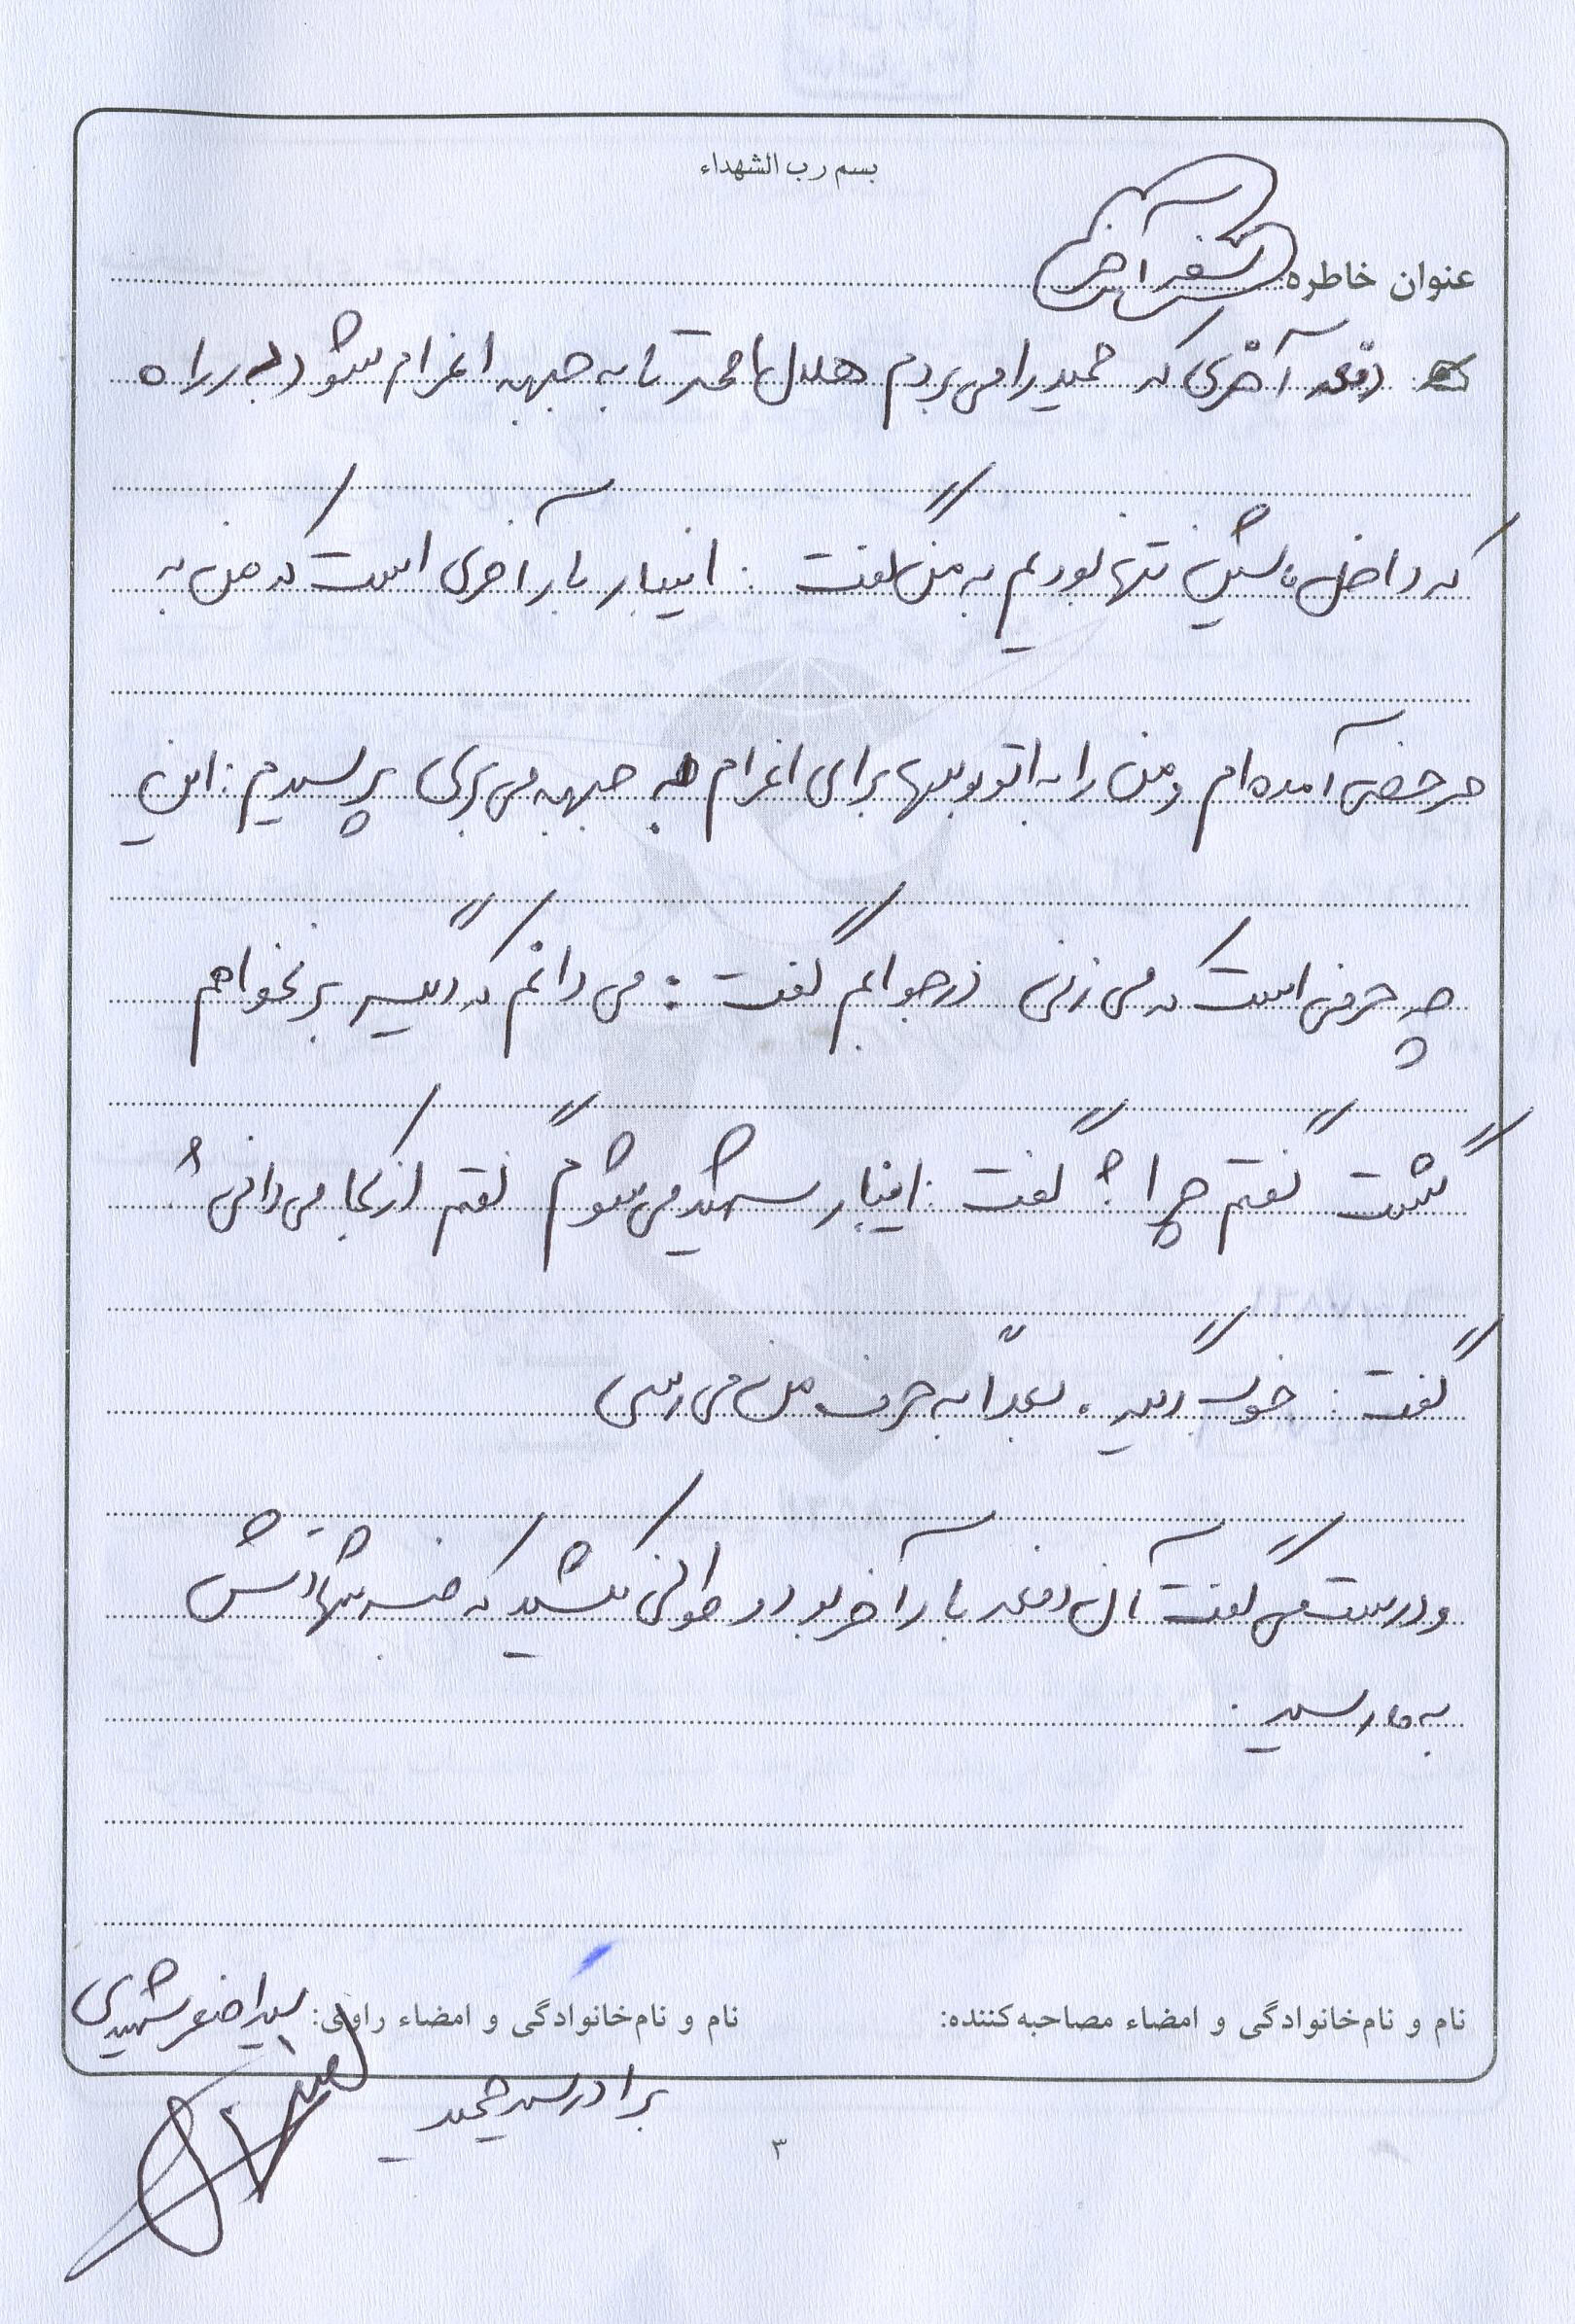 بسم رب الشهداء
عنوان خاطره: سفر آخر
دفعه آخری که حمید را می بردم هلال احمر تا به جبهه اغرام شود در راه
که داخل ماشین تنها بودیم به من گفت : اینبار بار آخری است که من به
مرخصی آمده ام و من را به اتوبوسها برای اغرام به جبهه می بری پرسیدم : این
چه حرفی است که می زنی در جوابم گفت : می دانم که دیگر بر نخواهم
گشت گفتم چرا ؟ گفت : اینبار شهید می شوم گفتم از کجا می دانی ؟
گفت : خوب دیگر . بعداً به حرف من می رسی
و درست می گفت آن دفعه بار آخر بود و طولی نکشید که خبر شهادتش
به ما رسید .
نام و نام‌خانوادگی و امضاء مصاحبه‌کننده: نام و نام‌خانوادگی و امضاء راوی: سید اصغر شهیدی
برادر سید حمید
۳